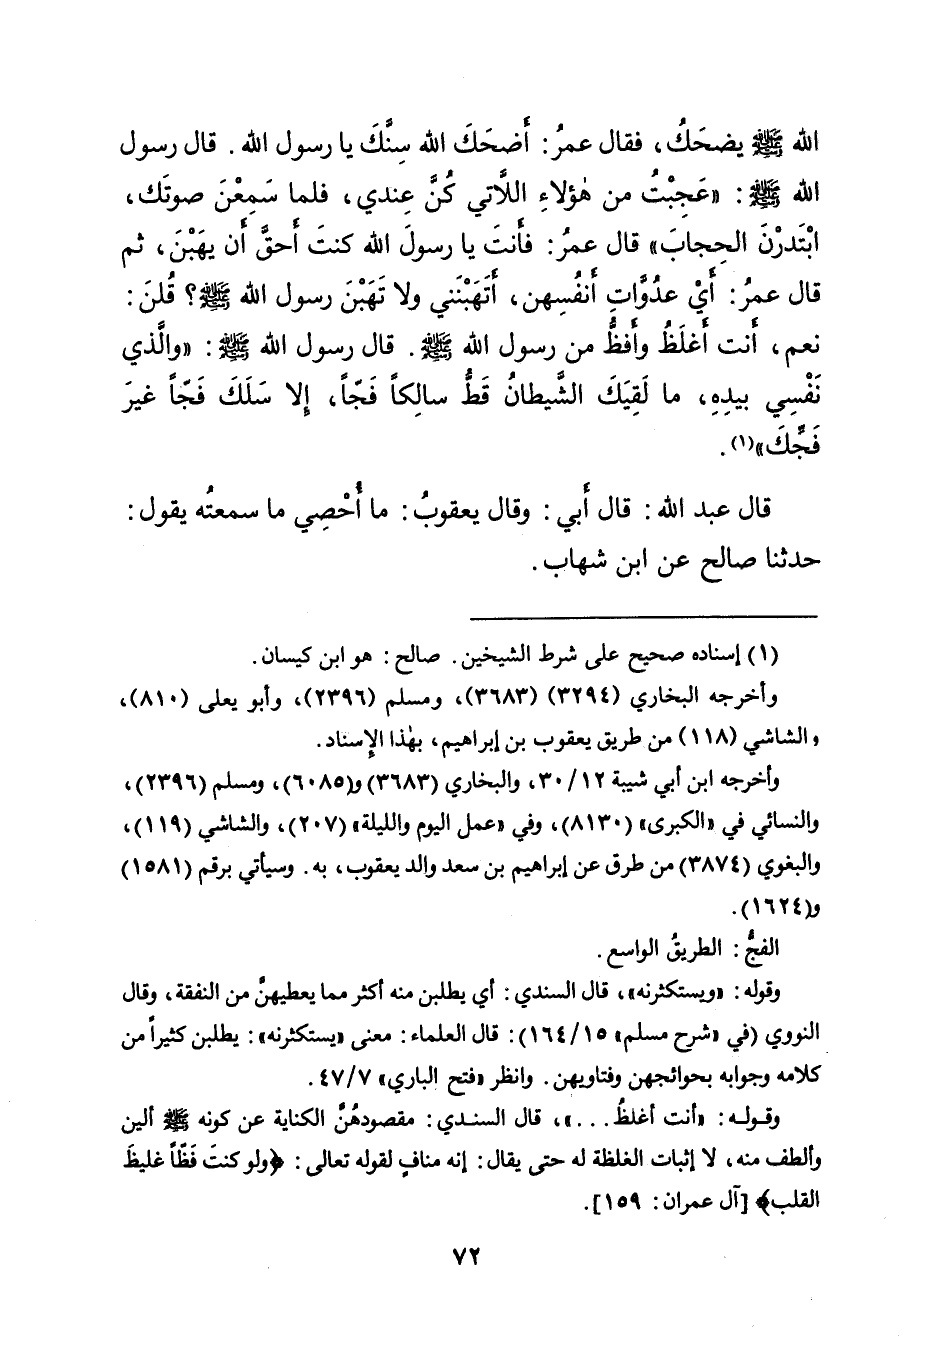 الله ﷺ يضحَكُ، فقال عمرُ: أَضحَكَ الله سِنَّكَ يا رسول الله. قال رسول
الله ﷺ: «عَجِبْتُ من هٰؤلاءِ اللَّاتي كُنَّ عِندي، فلما سَمِعْنَ صوتَك،
ابْتَدرْنَ الحِجابَ» قال عمرُ: فأَنتَ يا رسولَ الله كنتَ أَحقَّ أَن يهَبْنَ، ثم
قال عمرُ: أَيْ عدُوَّاتِ أَنفُسِهن، أَتَهَبْنَني ولا تَهَبْنَ رسول الله ﷺ؟ قُلنَ:
نعم، أَنت أَغلَظُ وأَفظُّ من رسول الله ﷺ. قال رسول الله ﷺ: «والَّذي
نَفْسِي بيدِهِ، ما لَقِيَكَ الشَّيطانُ قَطُّ سالِكاً فَجّاً، إِلا سَلَكَ فَجّاً غيرَ
فَجِّكَ»(١).
قال عبد الله: قال أَبي: وقال يعقوبُ: ما أُحْصِي ما سمعتُه يقول:
حدثنا صالح عن ابن شهاب.
(١) إسناده صحيح على شرط الشيخين. صالح: هو ابن كيسان.
وأخرجه البخاري (٣٢٩٤) (٣٦٨٣)، ومسلم (٢٣٩٦)، وأبو يعلى (٨١٠)،
والشاشي (١١٨) من طريق يعقوب بن إبراهيم، بهٰذا الإسناد.
وأخرجه ابن أبي شيبة ٣٠/١٢، والبخاري (٣٦٨٣) و(٦٠٨٥)، ومسلم (٢٣٩٦)،
والنسائي في «الكبرى» (٨١٣٠)، وفي «عمل اليوم والليلة» (٢٠٧)، والشاشي (١١٩)،
والبغوي (٣٨٧٤) من طرق عن إبراهيم بن سعد والد يعقوب، به. وسيأتي برقم (١٥٨١)
و(١٦٢٤).
الفجُّ: الطريقُ الواسع.
وقوله: «ويستكثرنه»، قال السندي: أي يطلبن منه أكثر مما يعطيهنَّ من النفقة، وقال
النووي (في «شرح مسلم» ١٦٤/١٥): قال العلماء: معنى «يستكثرنه»: يطلبن كثيراً من
كلامه وجوابه بحوائجهن وفتاويهن. وانظر «فتح الباري» ٤٧/٧.
وقوله: «أنت أغلظُ...»، قال السندي: مقصودهُنَّ الكناية عن كونه ﷺ ألين
وألطف منه، لا إثبات الغلظة له حتى يقال: إنه منافٍ لقوله تعالى: ﴿ولو كنتَ فَظّاً غليظَ
القلب﴾ [آل عمران: ١٥٩].
٧٢